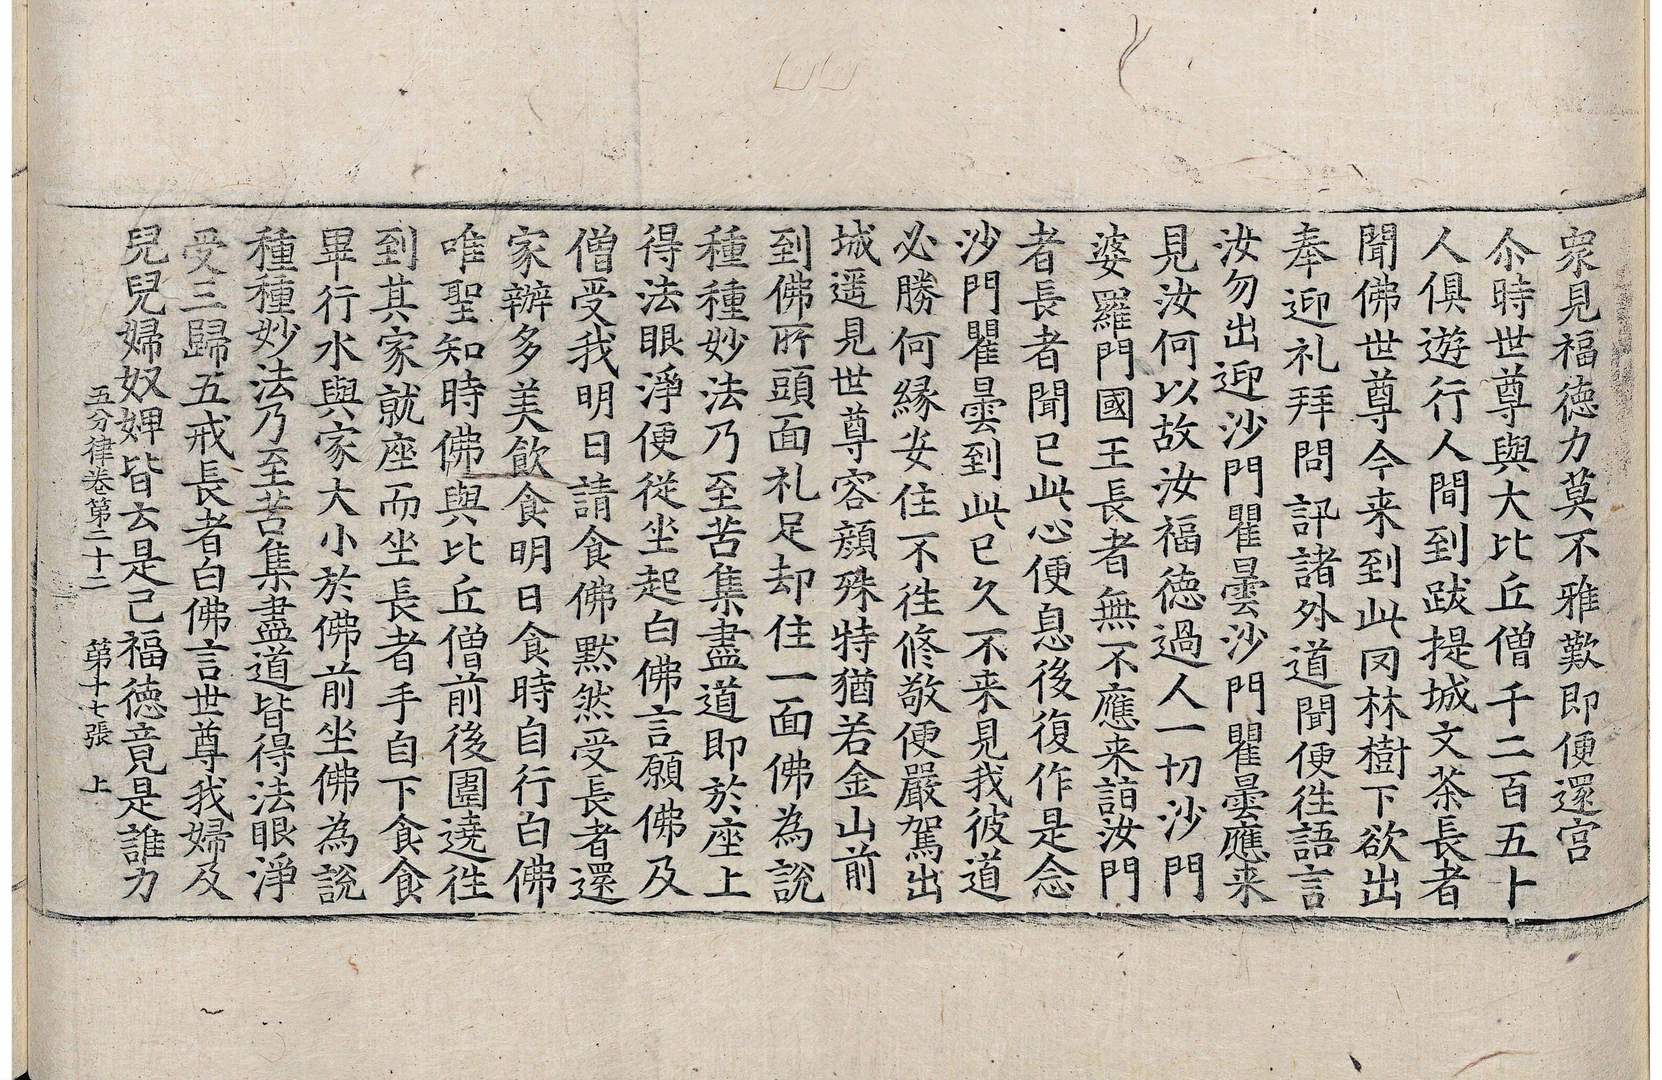 衆見福徳力莫不雅歎即便還宮
尒時世尊與大比丘僧千二百五十
人俱遊行人間到跋提城文荼長者
聞佛世尊今来到此𦊆林樹下欲出
奉迎礼拜問訊諸外道聞便徃語言
汝勿出迎沙門瞿曇沙門瞿曇應来
見汝何以故汝福徳過人一切沙門
婆羅門國王長者無不應来詣汝門
者長者聞已此心便息後復作是念
沙門瞿曇到此已久不来見我彼道
必勝何縁安住不徃修敬便嚴駕出
城遥見世尊容顏殊特猶若金山前
到佛所頭面礼足却住一面佛為說
種種妙法乃至苦集盡道即於座上
得法眼淨便從坐起白佛言願佛及
僧受我明日請食佛默然受長者還
家辦多美飲食明日食時自行白佛
唯聖知時佛與比丘僧前後圍遶徃
到其家就座而坐長者手自下食食
畢行水與家大小於佛前坐佛為說
種種妙法乃至苦集盡道皆得法眼淨
受三歸五戒長者白佛言世尊我婦及
兒兒婦奴婢皆云是己福徳竟是誰力
五分律卷第二十二 第十七張 上